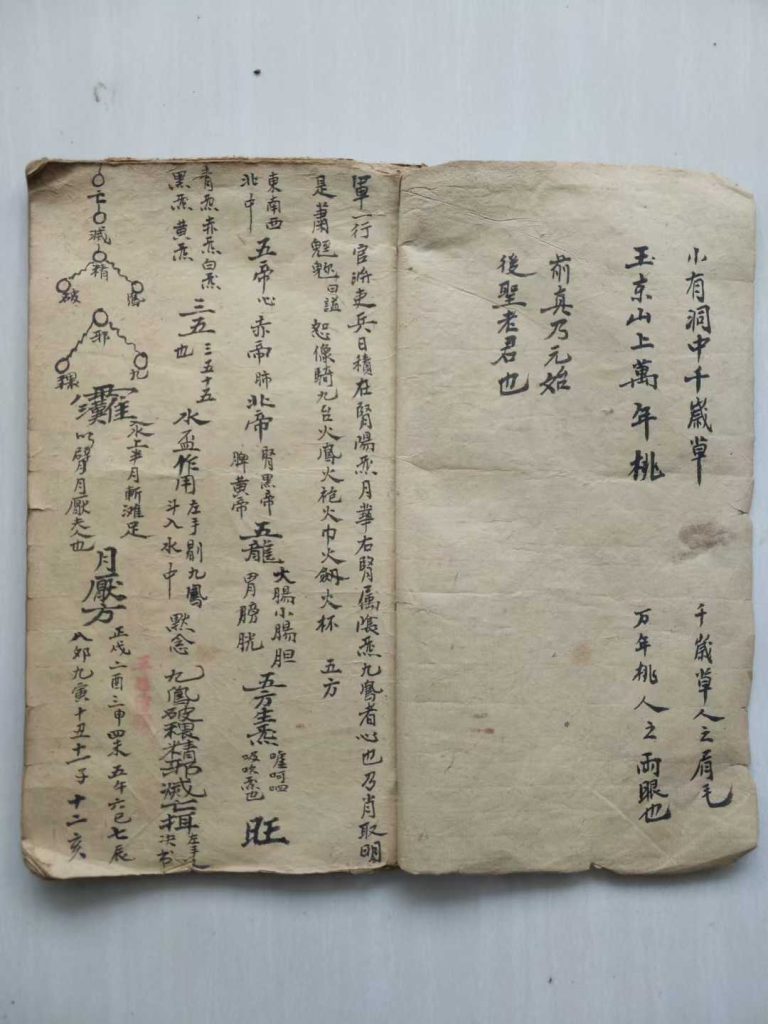 小有洞中千歲草 千歲草人之眉毛
玉京山上萬年桃 万年桃人之兩眼也
前真乃元始
後聖老君也
軍一行官將吏兵日積在腎陽炁月華右腎属陰炁九鳳者心也乃肖取明
是蕭 曰謚 恕像騎九台火鳳火袍火巾火劔火杯 五方
東南西
北中
五帝心 赤帝肺 北帝
腎黑帝
脾黄帝
五龍
大腸小腸胆
胃膀胱
五方生炁
呵呬
吸吹炁也
旺
青炁赤炁白炁
黑炁 黄炁
三五
三五十五
也
水盃作用
左手剔九鳳
斗入水中
默念 九鳳破穢精邪滅亡
左手
决书
亡
滅
精
破
鳳
邪
穢
九
永上半月斬灘足
以臂月厭夫人也
月厭方
正戌二酉三申四未五午六巳七辰
八夘九寅十丑十一子十二亥